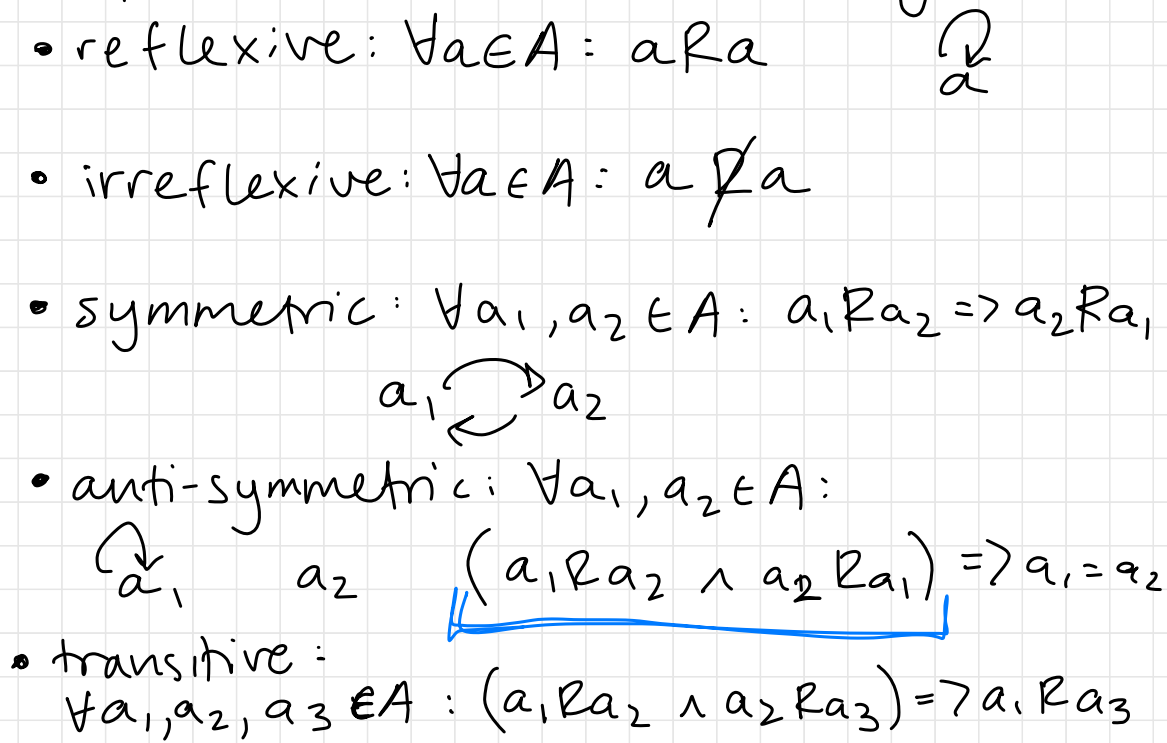 • reflexive: ∀a∈A: aRa
a
• irreflexive: ∀a∈A: a R̸ a
• symmetric: ∀a₁, a₂ ∈ A: a₁Ra₂ => a₂Ra₁
a₁ a₂
• anti-symmetric: ∀a₁, a₂ ∈ A:
a₁ a₂ (a₁Ra₂ ∧ a₂Ra₁) => a₁ = a₂
• transitive:
∀a₁, a₂, a₃ ∈ A: (a₁Ra₂ ∧ a₂Ra₃) => a₁Ra₃